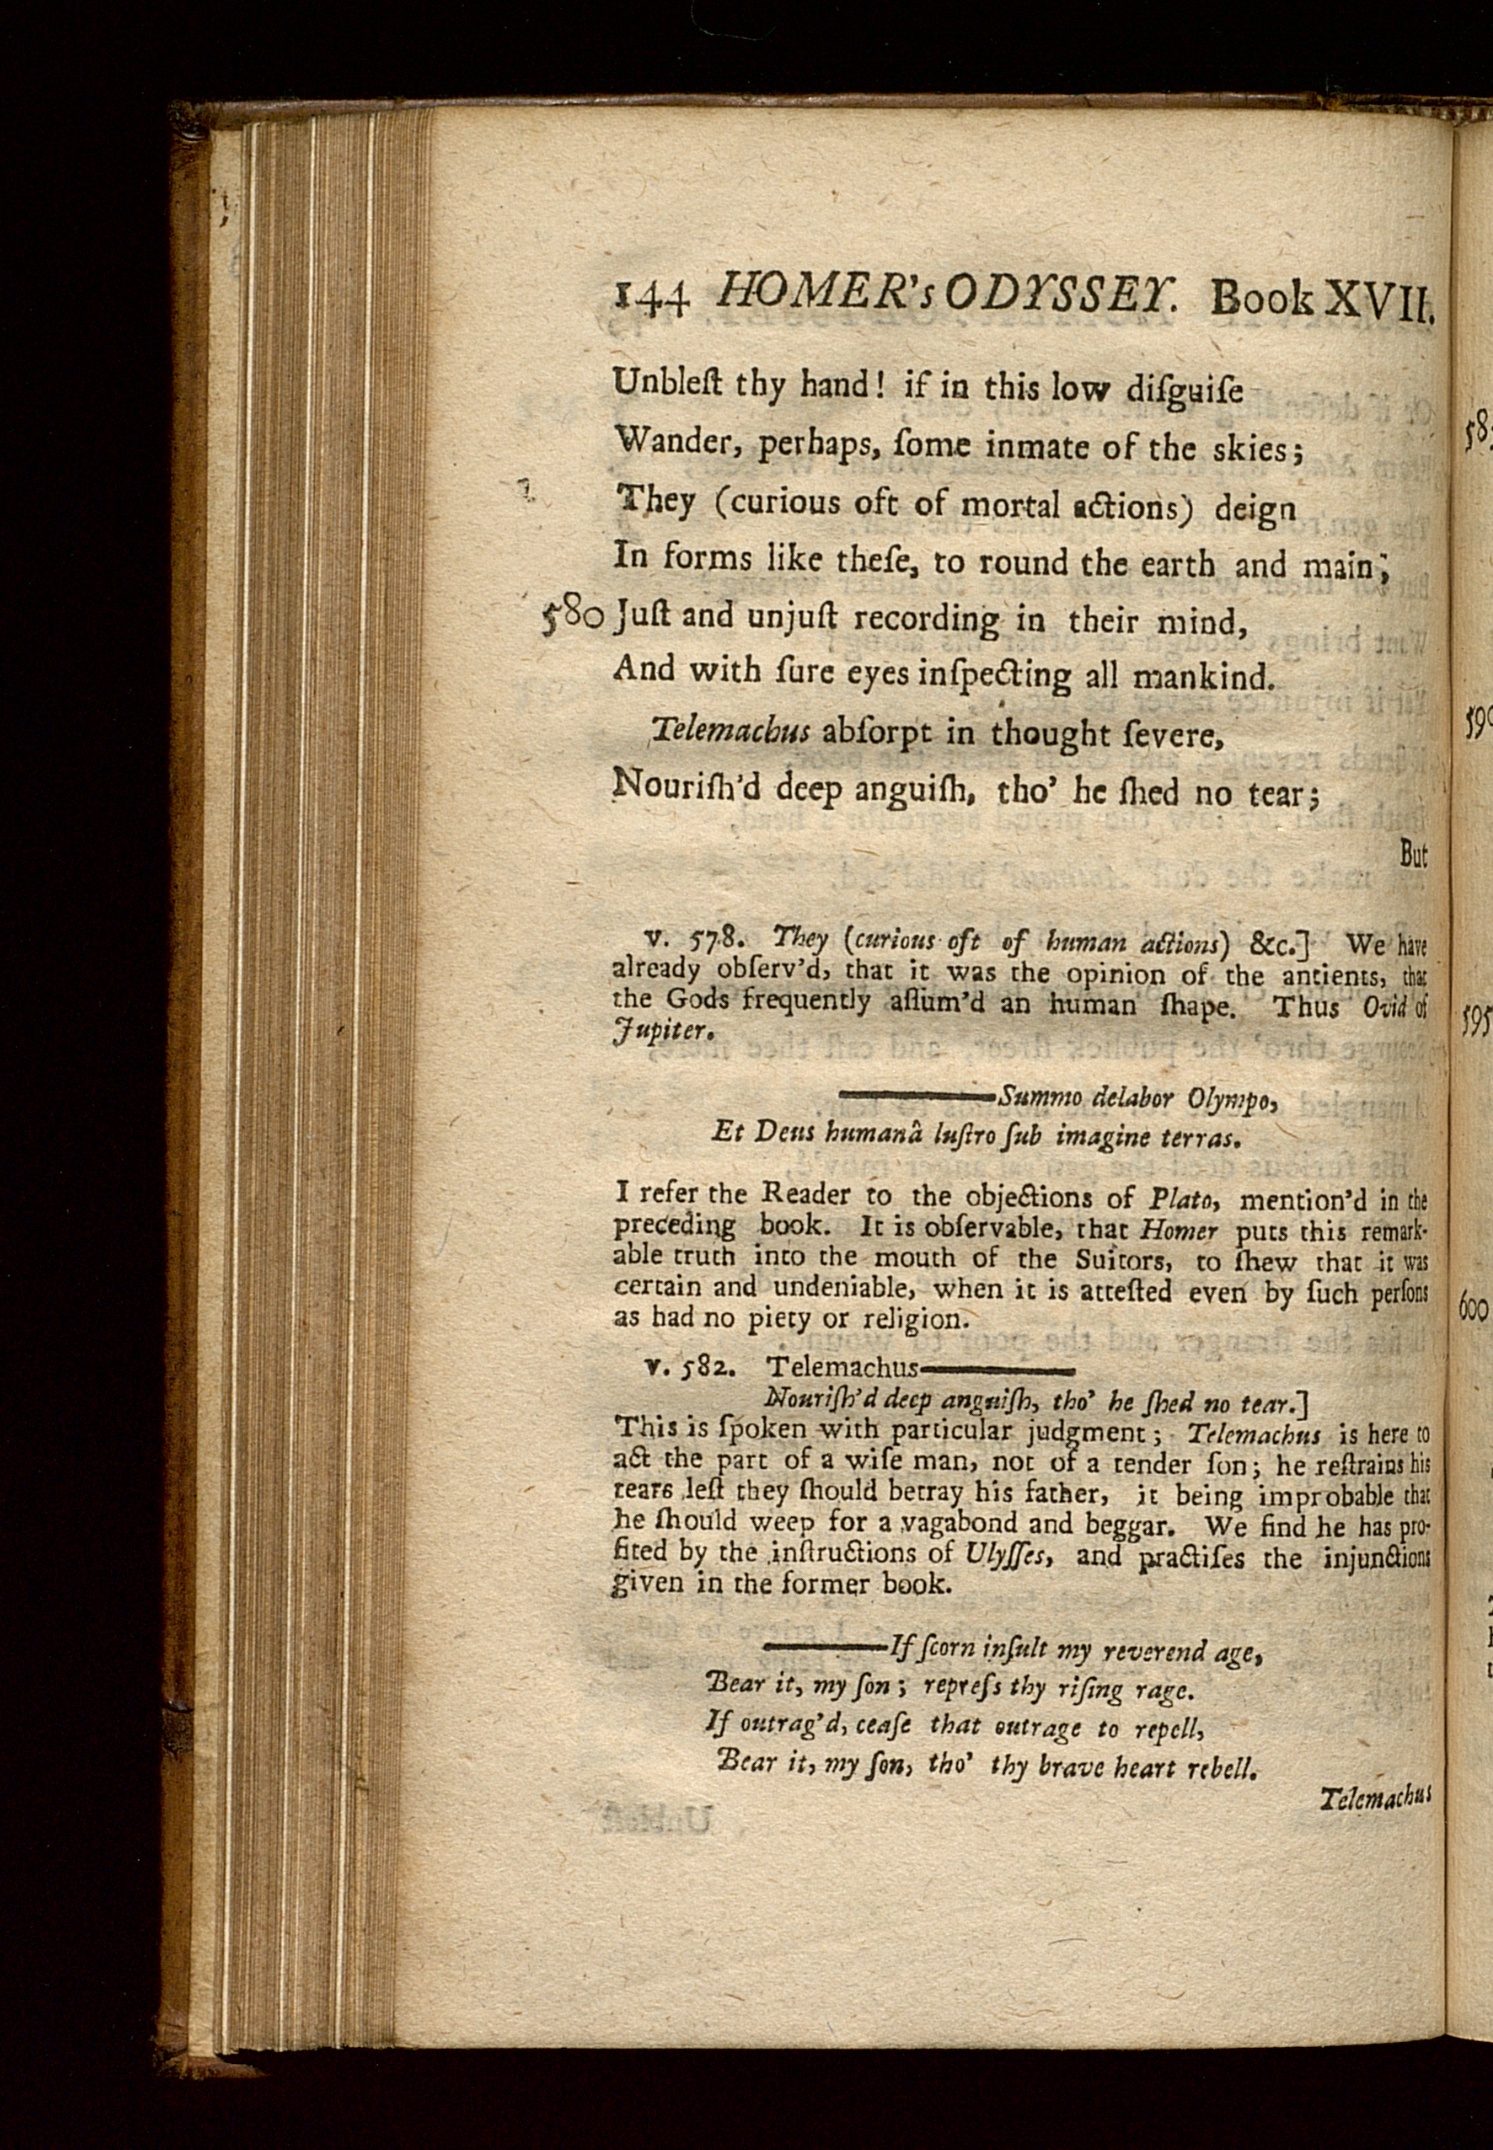 144 HOMER's ODYSSEY. Book XVII.
Unbleſt thy hand! if in this low diſguiſe
Wander, perhaps, ſome inmate of the skies;
They (curious oft of mortal actions) deign
In forms like theſe, to round the earth and main;
580 Juſt and unjuſt recording in their mind,
And with ſure eyes inſpecting all mankind.
Telemachus abſorpt in thought ſevere,
Nouriſh'd deep anguiſh, tho' he ſhed no tear;
But
v. 578. They (curious oft of human actions) &c.] We have
already obſerv'd, that it was the opinion of the antients, that
the Gods frequently aſſum'd an human ſhape. Thus Ovid of
Jupiter.
———Summo delabor Olympo,
Et Deus humanâ luſtro ſub imagine terras.
I refer the Reader to the objections of Plato, mention'd in the
preceding book. It is obſervable, that Homer puts this remark-
able truth into the mouth of the Suitors, to ſhew that it was
certain and undeniable, when it is atteſted even by ſuch perſons
as had no piety or religion.
v. 582. Telemachus———
Nouriſh'd deep anguiſh, tho' he ſhed no tear.]
This is ſpoken with particular judgment; Telemachus is here to
act the part of a wiſe man, not of a tender ſon; he reſtrains his
tears leſt they ſhould betray his father, it being improbable that
he ſhould weep for a vagabond and beggar. We find he has pro-
fited by the inſtructions of Ulyſſes, and practiſes the injunctions
given in the former book.
———If ſcorn inſult my reverend age,
Bear it, my ſon; repreſs thy riſing rage.
If outrag'd, ceaſe that outrage to repell,
Bear it, my ſon, tho' thy brave heart rebell.
Telemachus
590
595
600